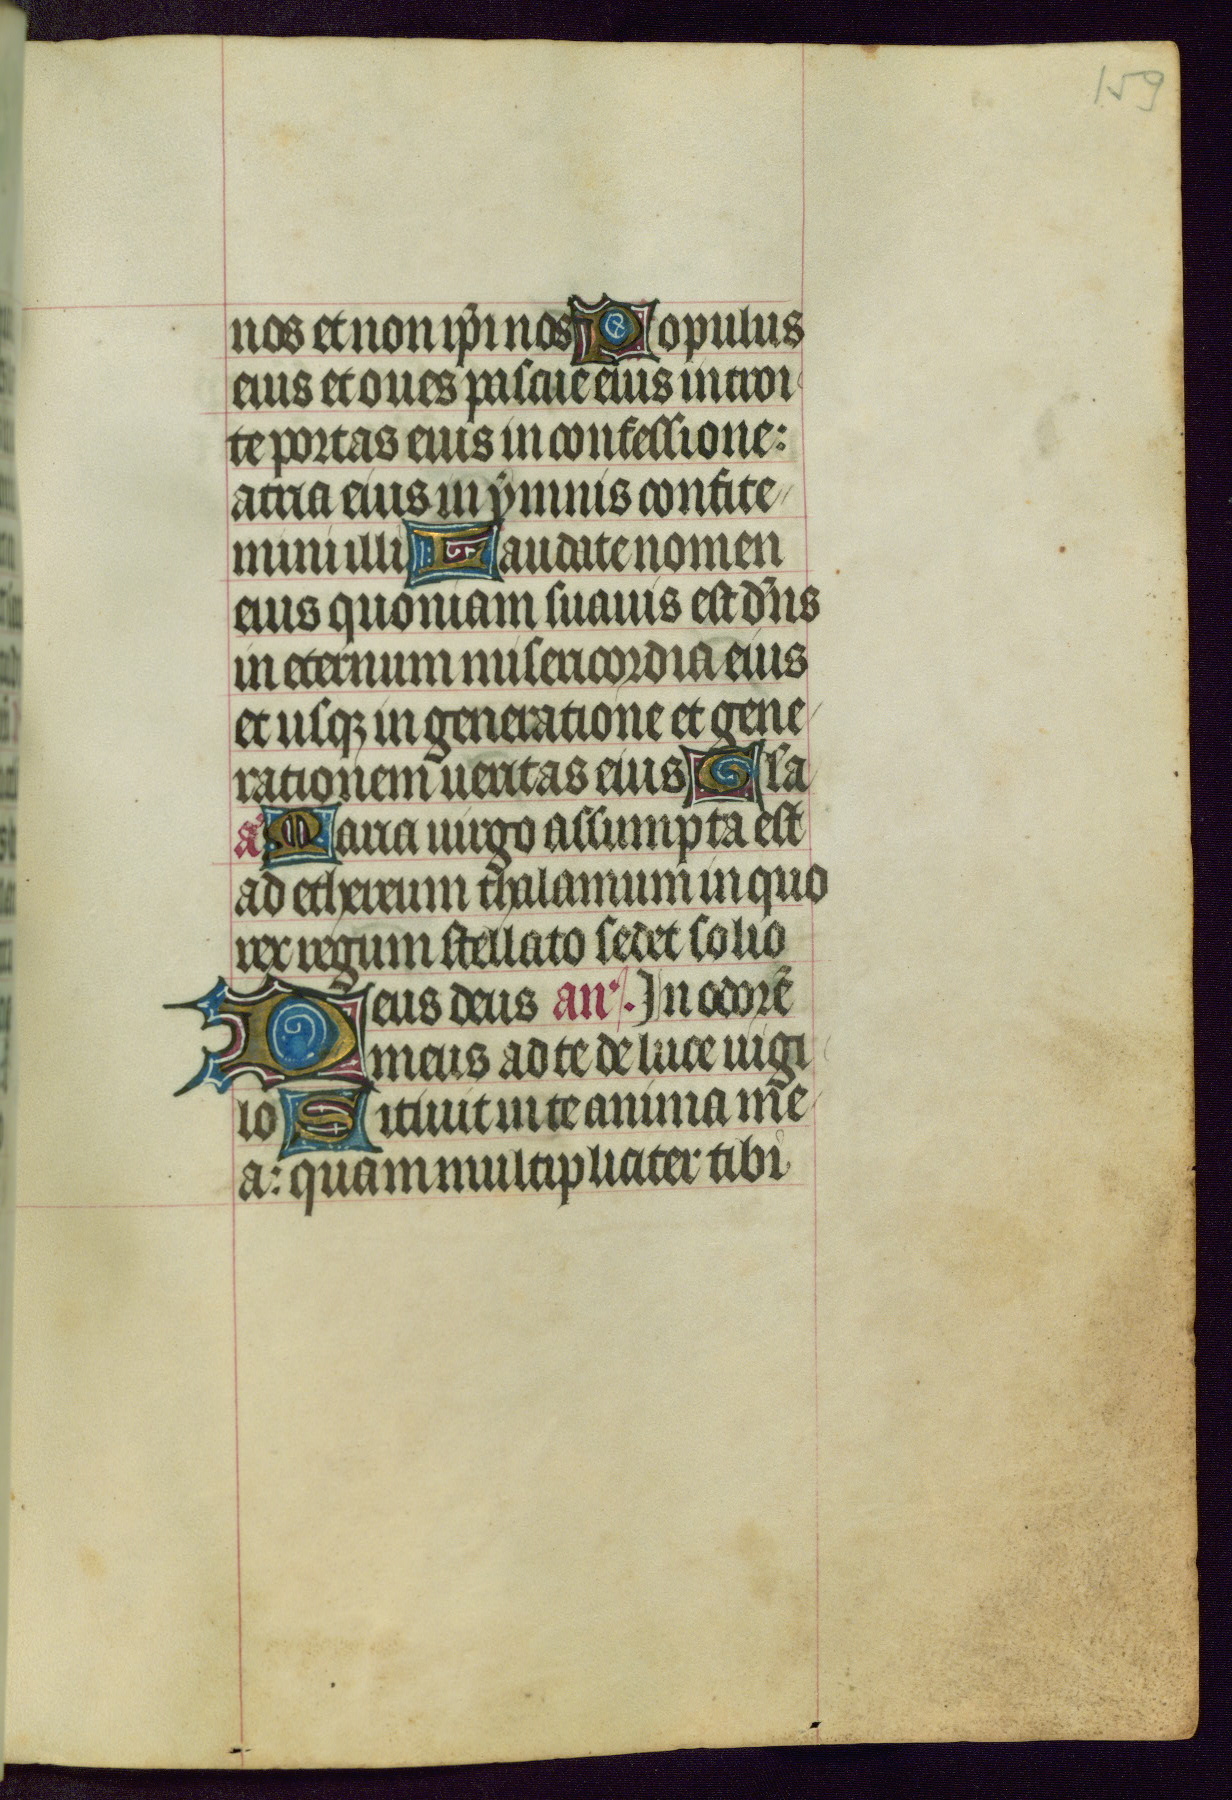 159
nos et non ip̄i nos Populus
eius et oues pascue eius introi
te portas eius in confessione:
atria eius in ymnis confite
mini illi Laudate nomen
eius quoniam suauis est dn̄s
in eternum misericordia eius
et usqꝫ in generatione et gene
rationem ueritas eius Gl̄a
añ Maria uirgo assumpta est
ad ethereum thalamum in quo
rex regum stellato sedet solio
Deus deus an̄. In odorē
meus ad te de luce uigi
lo Sitiuit in te anima me
a: quam multipliciter tibi